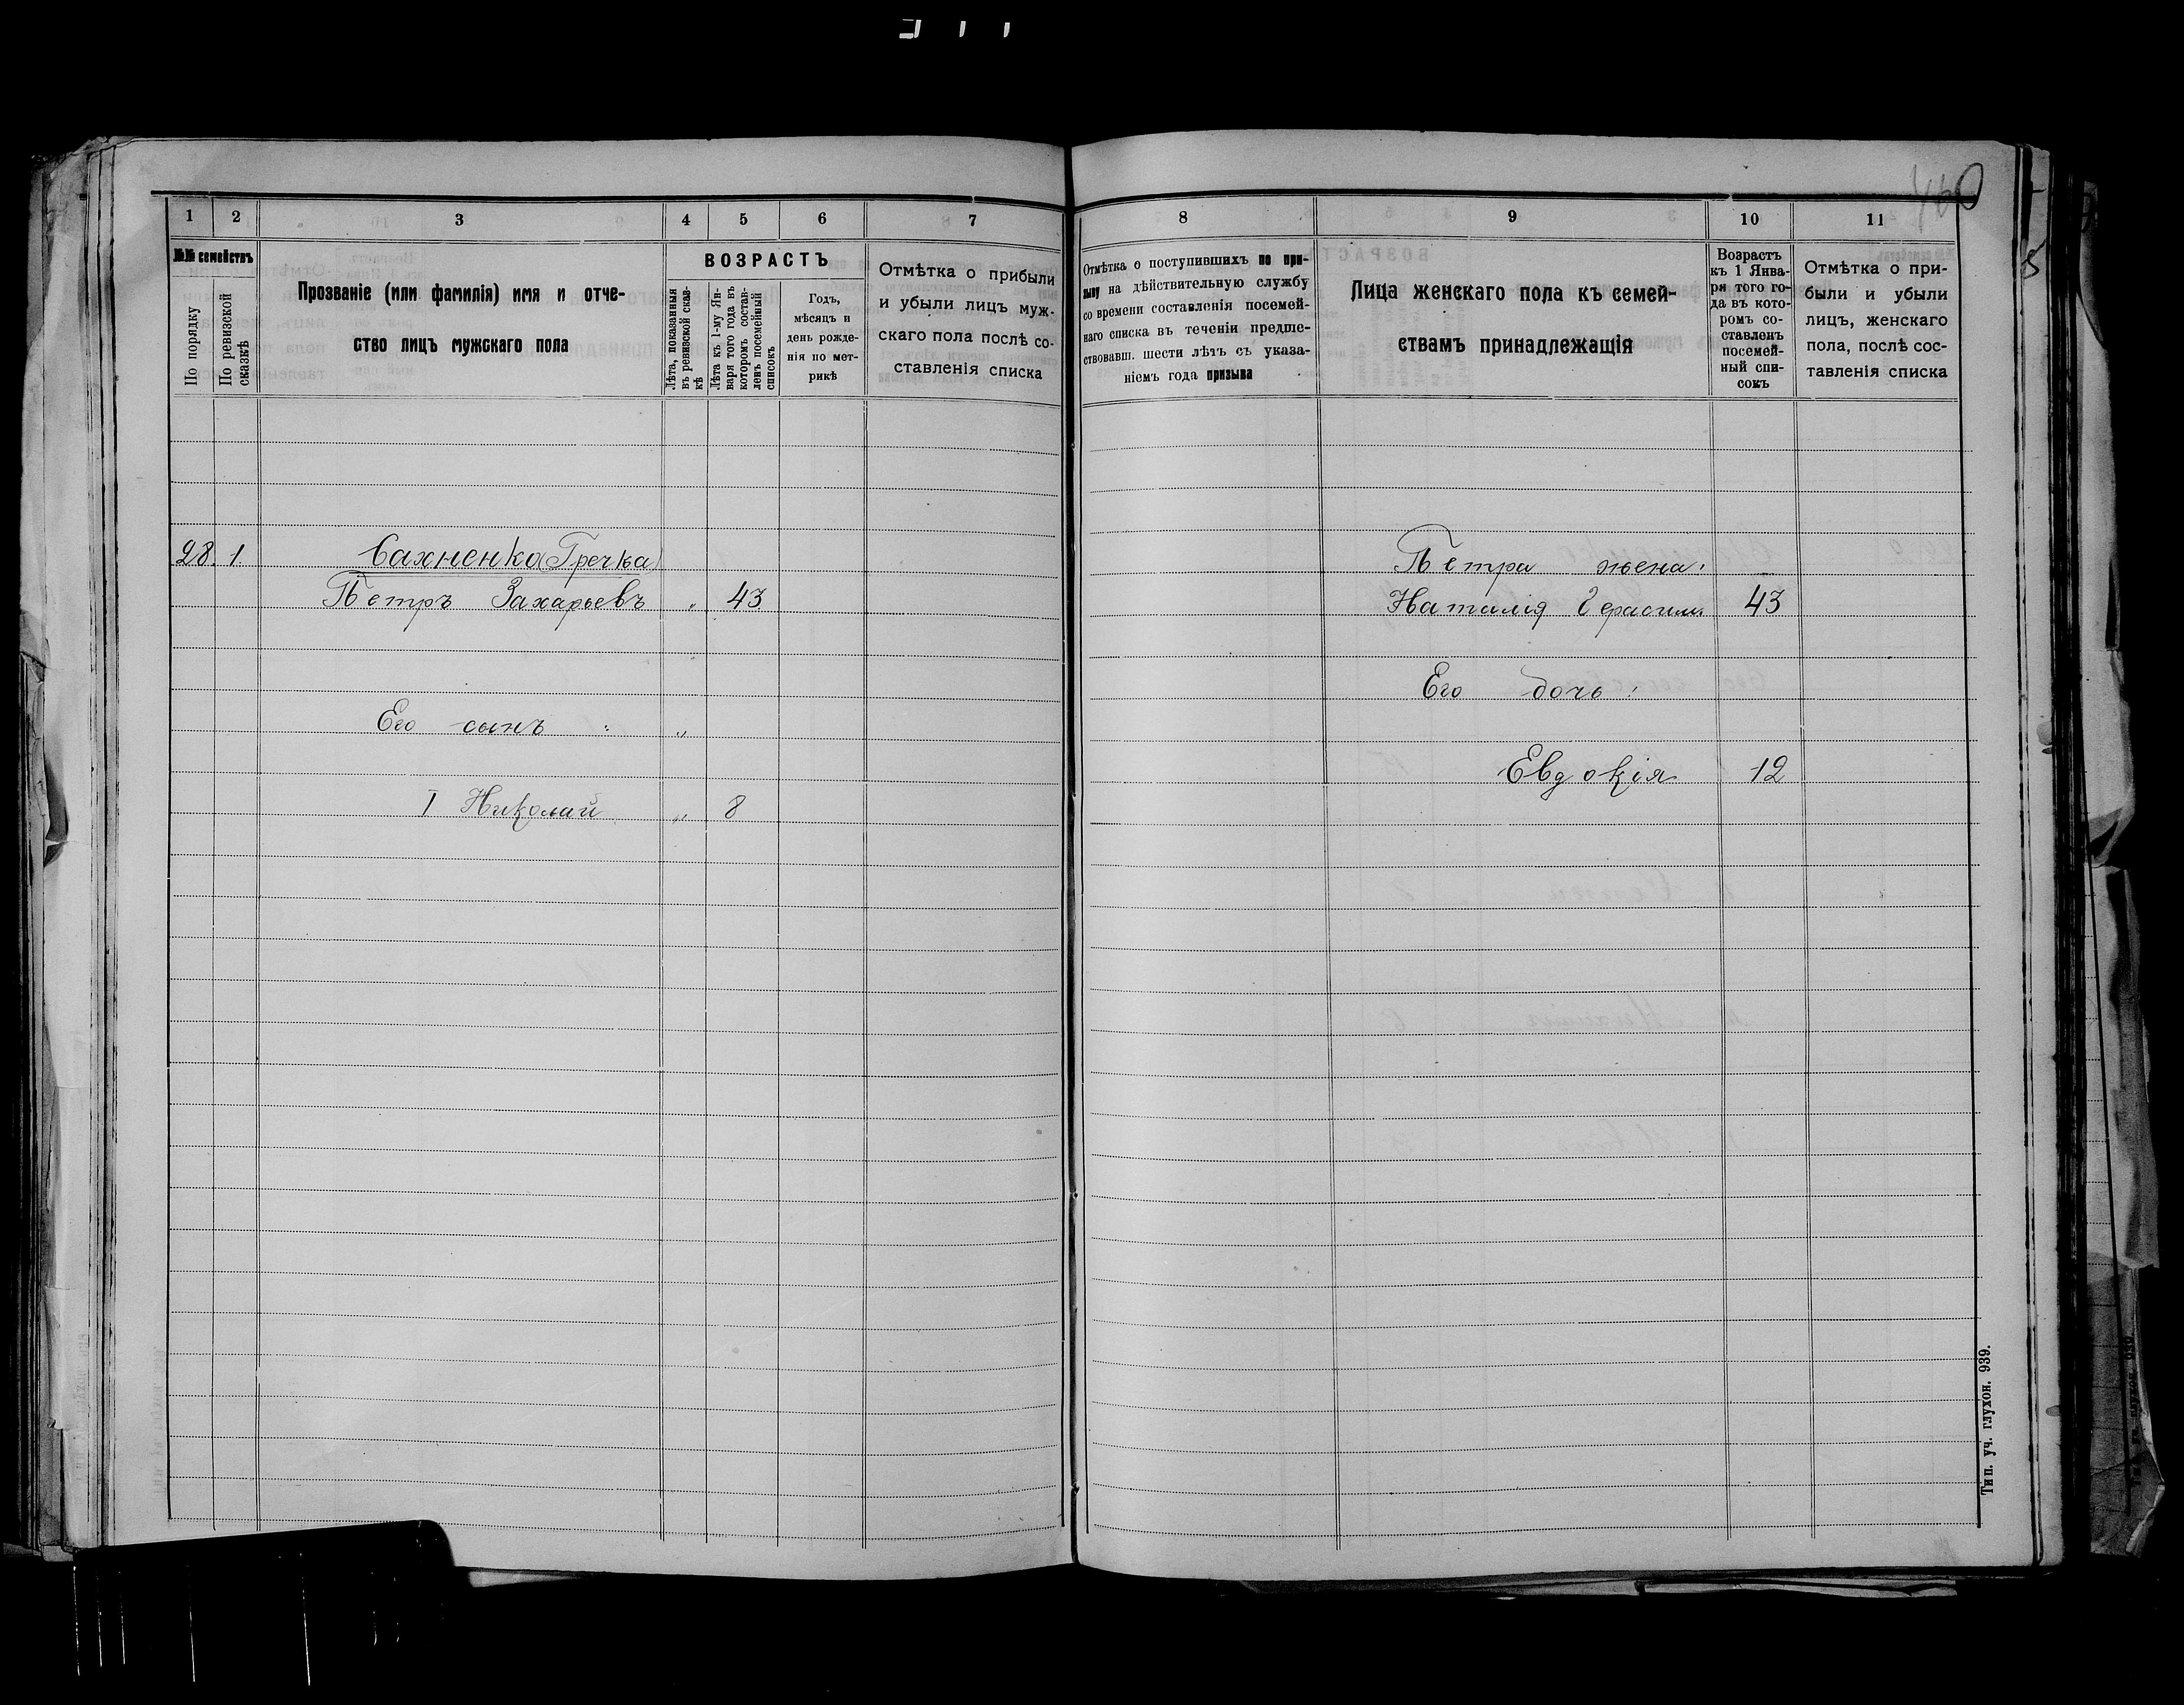 460
1 2 3 4 5 6 7
№№ семействъ
По порядку
По ревизской сказкѣ
Прозваніе (или фамилія) имя и отче-
ство лицъ мужскаго пола
ВОЗРАСТЪ
Лѣта, показанныя
въ ревизской сказ-
кѣ
Лѣта къ 1-му Ян-
варя того года въ
которомъ состав-
ленъ посемейный
списокъ
Годъ,
мѣсяцъ и
день рожде-
нія по мет-
рикѣ
Отмѣтка о прибыли
и убыли лицъ муж-
скаго пола послѣ со-
ставленія списка
28. 1. Сахненко (Гречка)
Петръ Захарьевъ „ 43
Его сынъ : „
1 Николай „ 8
8 9 10 11
Отмѣтка о поступившихъ по при-
зыву на дѣйствительную службу
со времени составленія посемей-
наго списка въ теченіи предше-
ствовавш. шести лѣтъ съ указа-
ніемъ года призыва
Лица женскаго пола къ семей-
ствамъ принадлежащія
Возрастъ
къ 1 Янва-
ря того го-
да въ кото-
ромъ со-
ставленъ
посемей-
ный спи-
сокъ
Отмѣтка о при-
были и убыли
лицъ, женскаго
пола, послѣ сос-
тавленія списка
Петра жена:
Наталія Герасим. 43
Его дочь :
Евдокія 12
Тип. уч. глухон. 939.